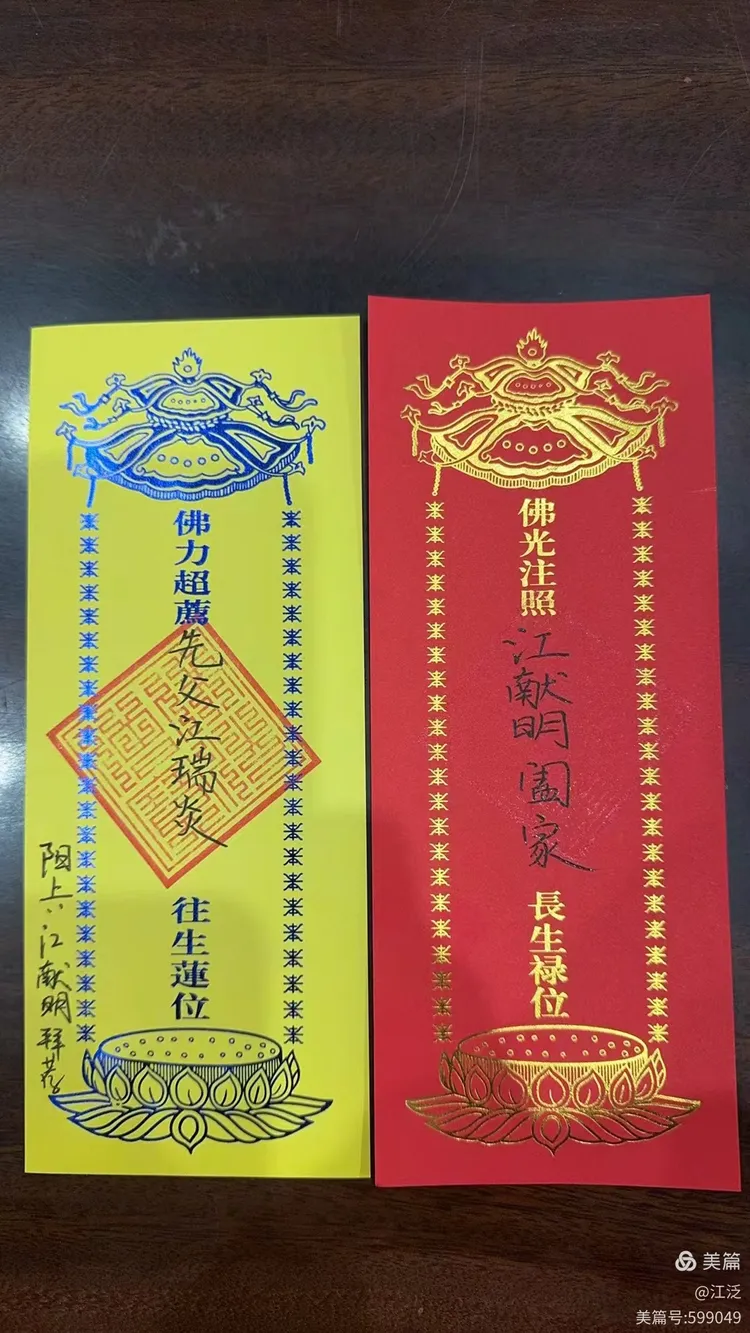 佛力超薦
先父江瑞炎
往生蓮位
阳上：江献明拜荐
佛光注照
江献明阖家
長生禄位
美篇
@江泛
美篇号:599049